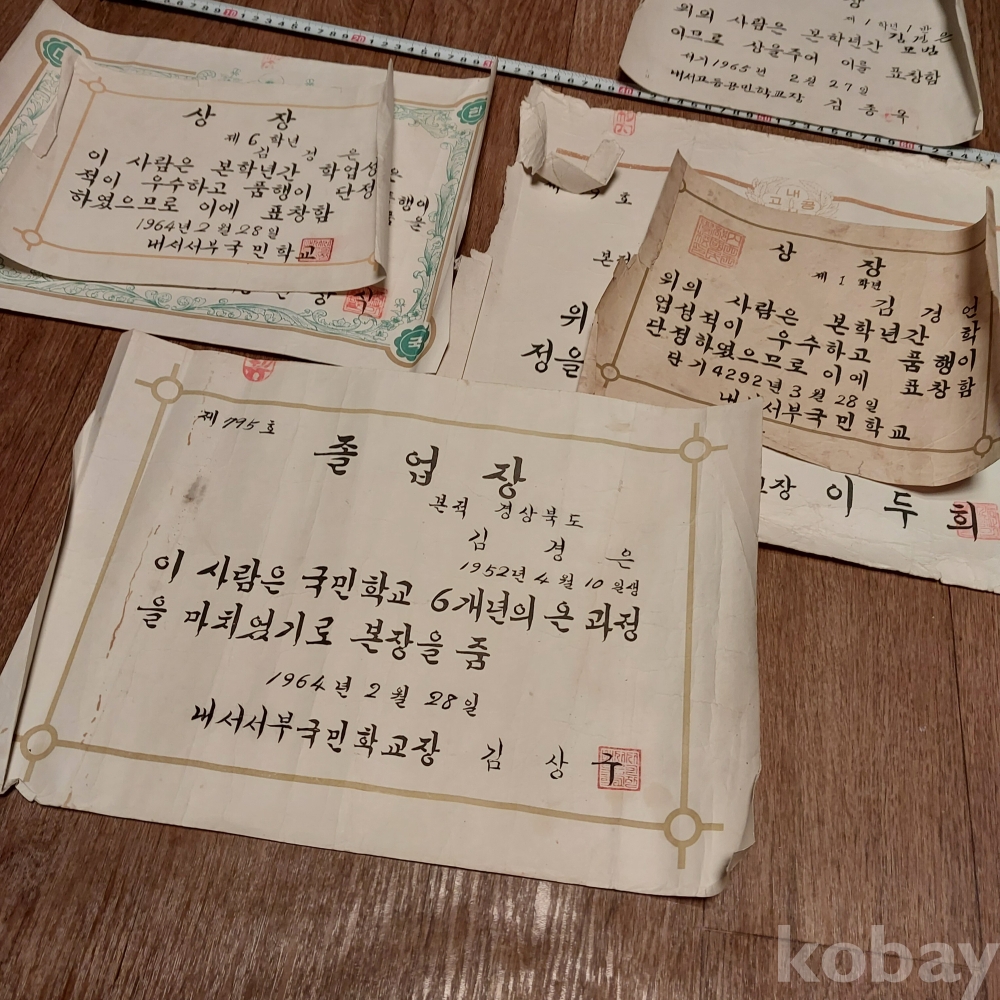 상 장
제 6 학년
김 경 은
이 사람은 본학년간 학업성
적이 우수하고 품행이 단정
하였으므로 이에 표창함
1964년 2월 28일
내서서부국민학교
국
장
제 1 학년 1 반
김경은
위의 사람은 본학년간 모범
이므로 상을주어 이를 표창함
서기 1965년 2월 27일
내서고등공민학교장 김 종 욱
호
본적
위
정을
교장 이 두 희
내
고 공
상 장
제 1 학년
김 경 언
외의 사람은 본학년간 학
업성적이 우수하고 품행이
단정하였으므로 이에 표창함
단기 4292년 3월 28일
내서서부국민학교
제 795 호
졸 업 장
본적 경상북도
김 경 은
1952년 4월 10일생
이 사람은 국민학교 6개년의 온 과정
을 마치었기로 본장을 줌
1964년 2월 28일
내서서부국민학교장 김 상 구
kobay